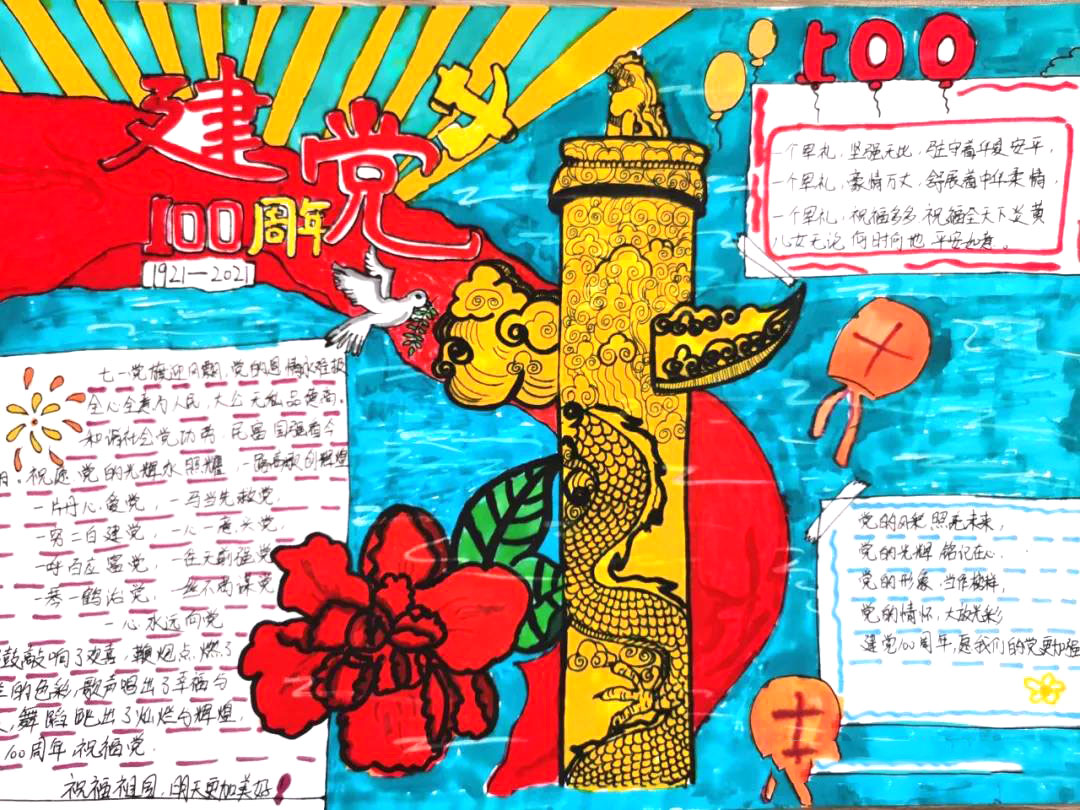 建党
100周年
1921—2021
100
一个军礼,坚强无比,驻守着华夏安平,
一个军礼,豪情万丈,舒展着中华柔情,
一个军礼,祝福多多,祝福全天下炎黄
儿女无论何时何地平安如意。
七一党旗迎风飘,党的恩情永难报
全心全意为人民,大公无私品德高。
和谐社会党功劳,民富国强看今
朝。祝愿党的光辉永照耀,一路高歌创辉煌
一片丹心爱党,一马当先救党,
一穷二白建党,一心一意兴党,
一呼百应富党,一往无前强党,
一琴一鹤治党,一丝不苟谋党,
一心永远向党
鼓敲响了欢喜,鞭炮点燃了
的色彩,歌声唱出了幸福与
舞蹈跳出了灿烂与辉煌,
100周年,祝福党.
祝福祖国,明天更加美好!
党的风貌照亮未来,
党的光辉铭记在心.
党的形象,当作榜样,
党的情怀,大放光彩
建党100周年,愿我们的党更加强